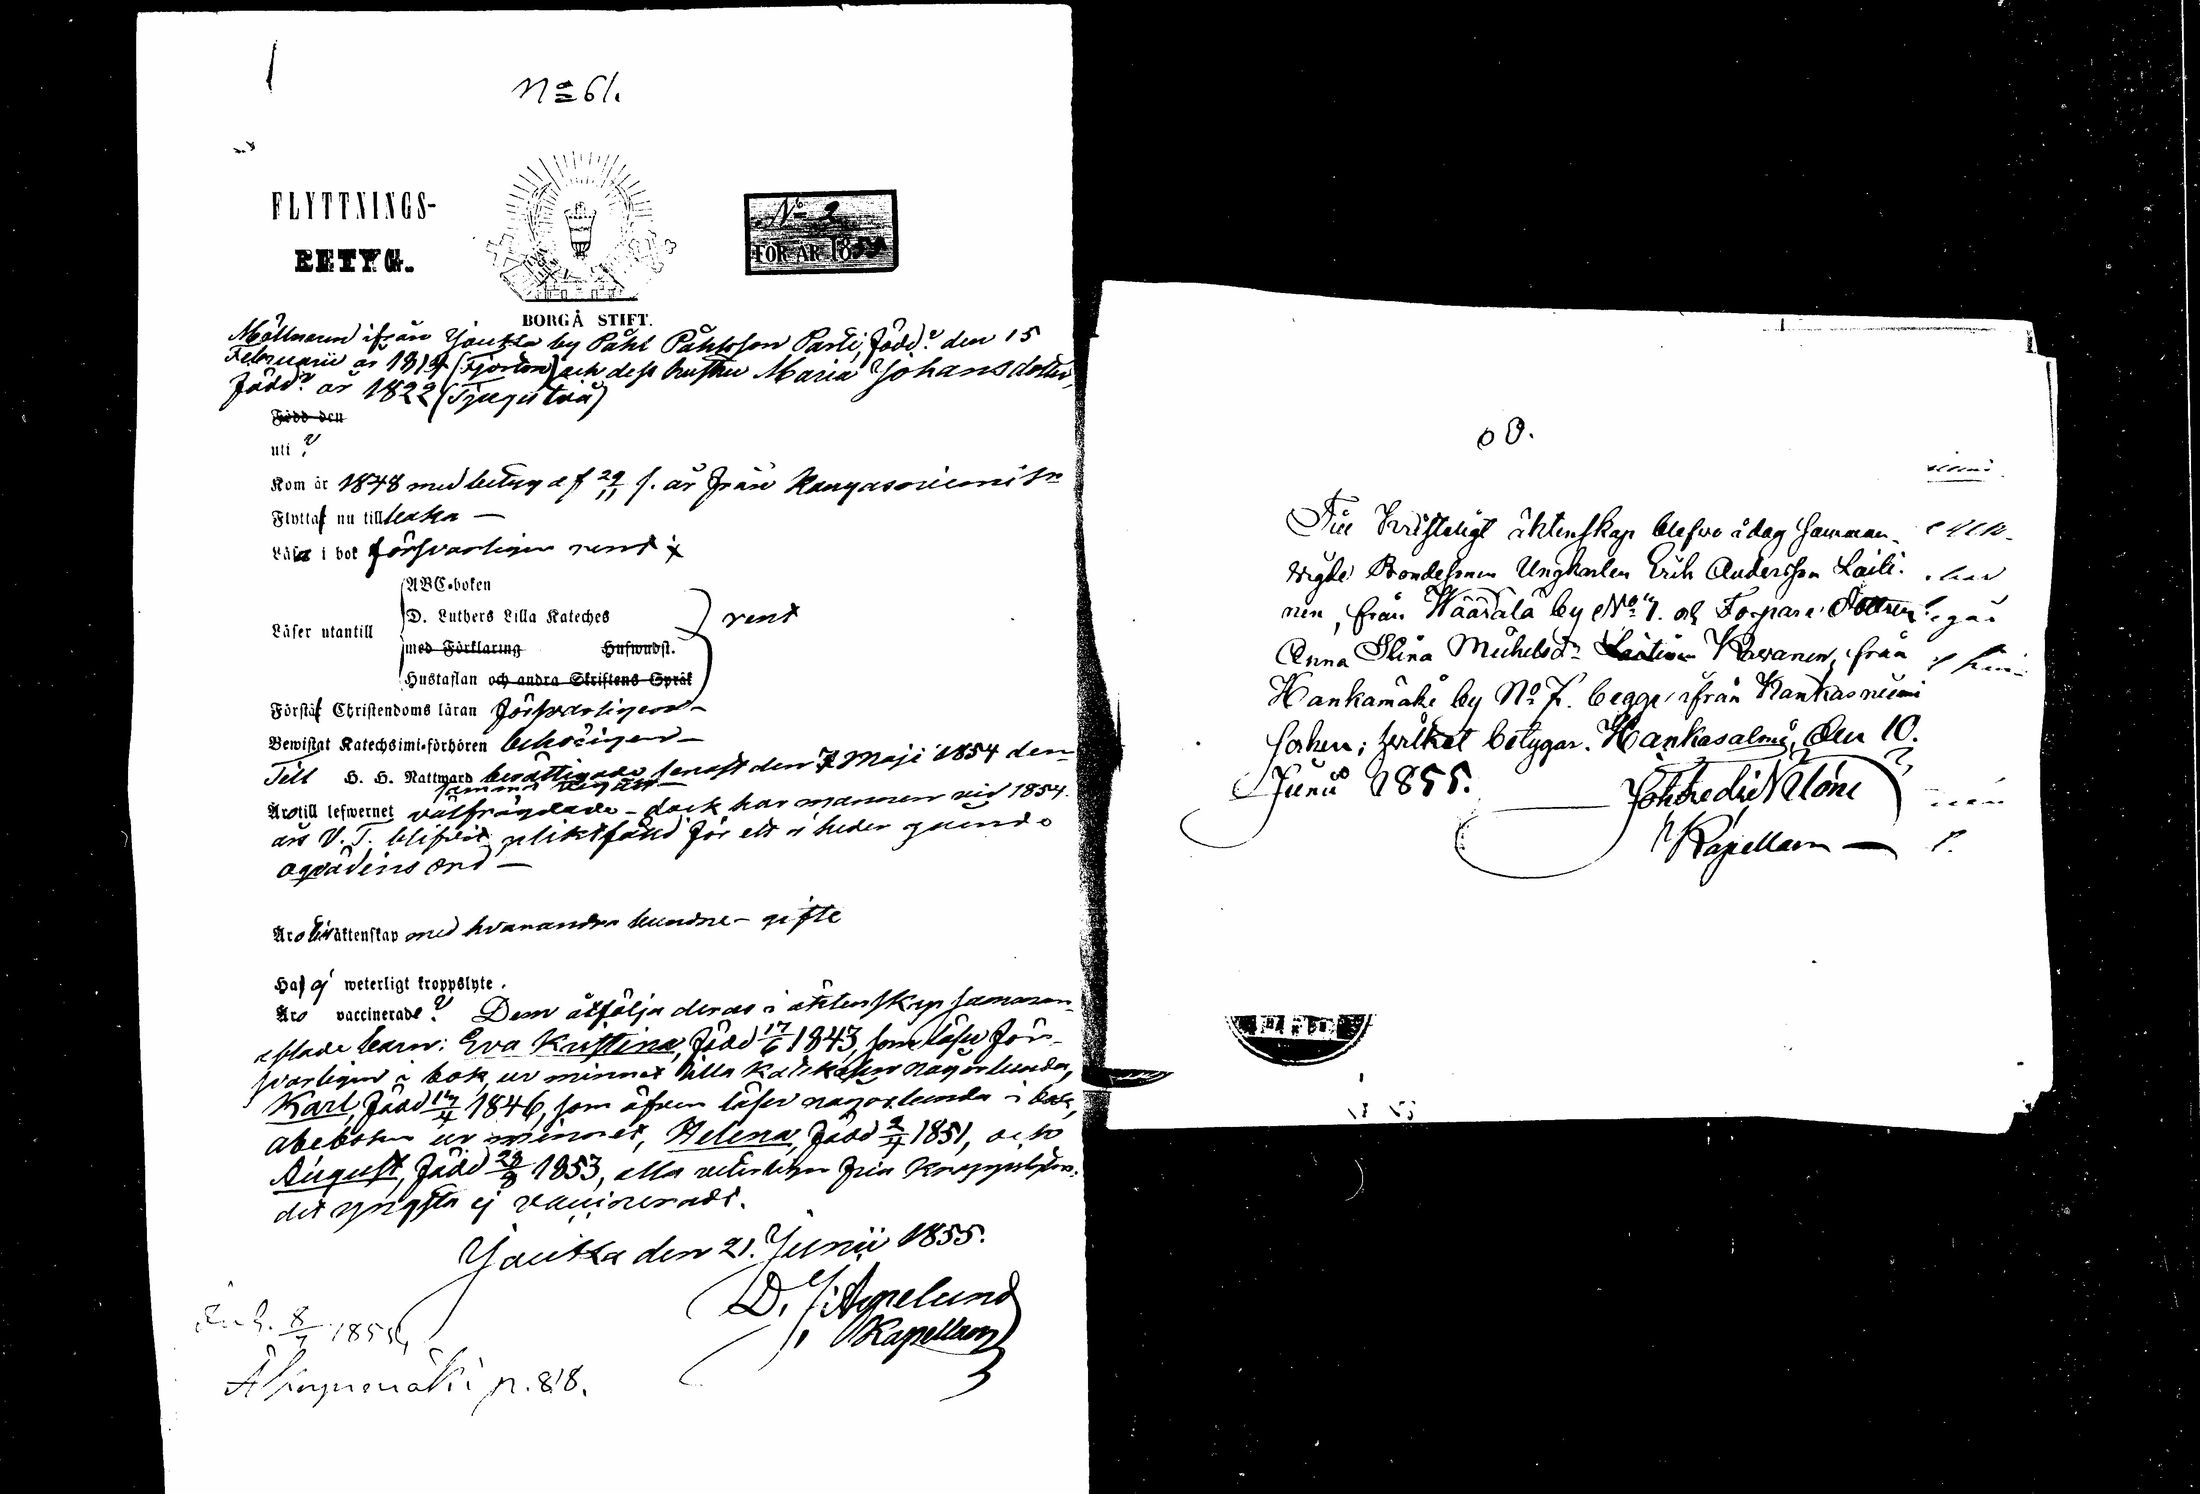 No 61.
FLYTTNINGS-
BETYG.
No 2
FÖR ÅR 185
BORGÅ STIFT.
ifrån Joutsa by Påhl Påhlsson Parti, född? den 15
Februarii år 1814 (Fjorton) och dess hustru Maria Johansdotter,
född? år 1822 (Tjugutvå)
Född den
uti ?
Kom år 1848 med betyg af 29/11 s. år från Kangasniemi
Flytta nu till baka —
Läsa i bok försvarligen rent
ABC-boken
D. Luthers Lilla Kateches
Läser utantill
rent
med Förklaring Hufwudst.
Hustaflan och andra Skriftens Språk
Förstå Christendoms läran försvarligen —
Bewistat Katechsimi-förhören behörigen —
Till H. H. Nattward berättigade senast den 7 Maji 1854 den
samma begått
Äro till lefwernet välfrägdade — dock har mannen vid 1854
års V. T. blifvit pliktfälld för ett å heder gående
oqvädins ord —
Äro till äktenskap med hvarandra bundne — gifte
Haf ej weterligt kroppslyte.
Äro vaccinerade? Dem åtfölja deras i äktenskap samman-
aflade barn: Eva Kristina, född 17/6 1843, som läser för-
svarligen i bok, ur minnet lilla katekesen någorlunda,
Karl, född 17/4 1846, som äfven läser någorlunda i bok,
abeboken ur minnet, Helena, född 2/4 1851, och
August, född 28/8 1853, alla veterligen fria kroppslyten,
det yngsta ej vaccineradt.
Joutsa den 21. Junii 1855.
D. J. Agrelund
Kapellan
8/7 1855
p. 818.
Till Kristeligt äktenskap blefvo i dag samman-
vigde Bondesonen Ungkarlen Erik Andersson Laiti-
nen, från Väärälä by No 7. och Torpare Dottren
Anna Stina Michelsdr Laitinen Kovanen, från
Hankamäki by No 7. begge ifrån Kankasniemi
socken; hvilket betygar. Hankasalmi, den 10.
Junii 1855.
Kapellan —